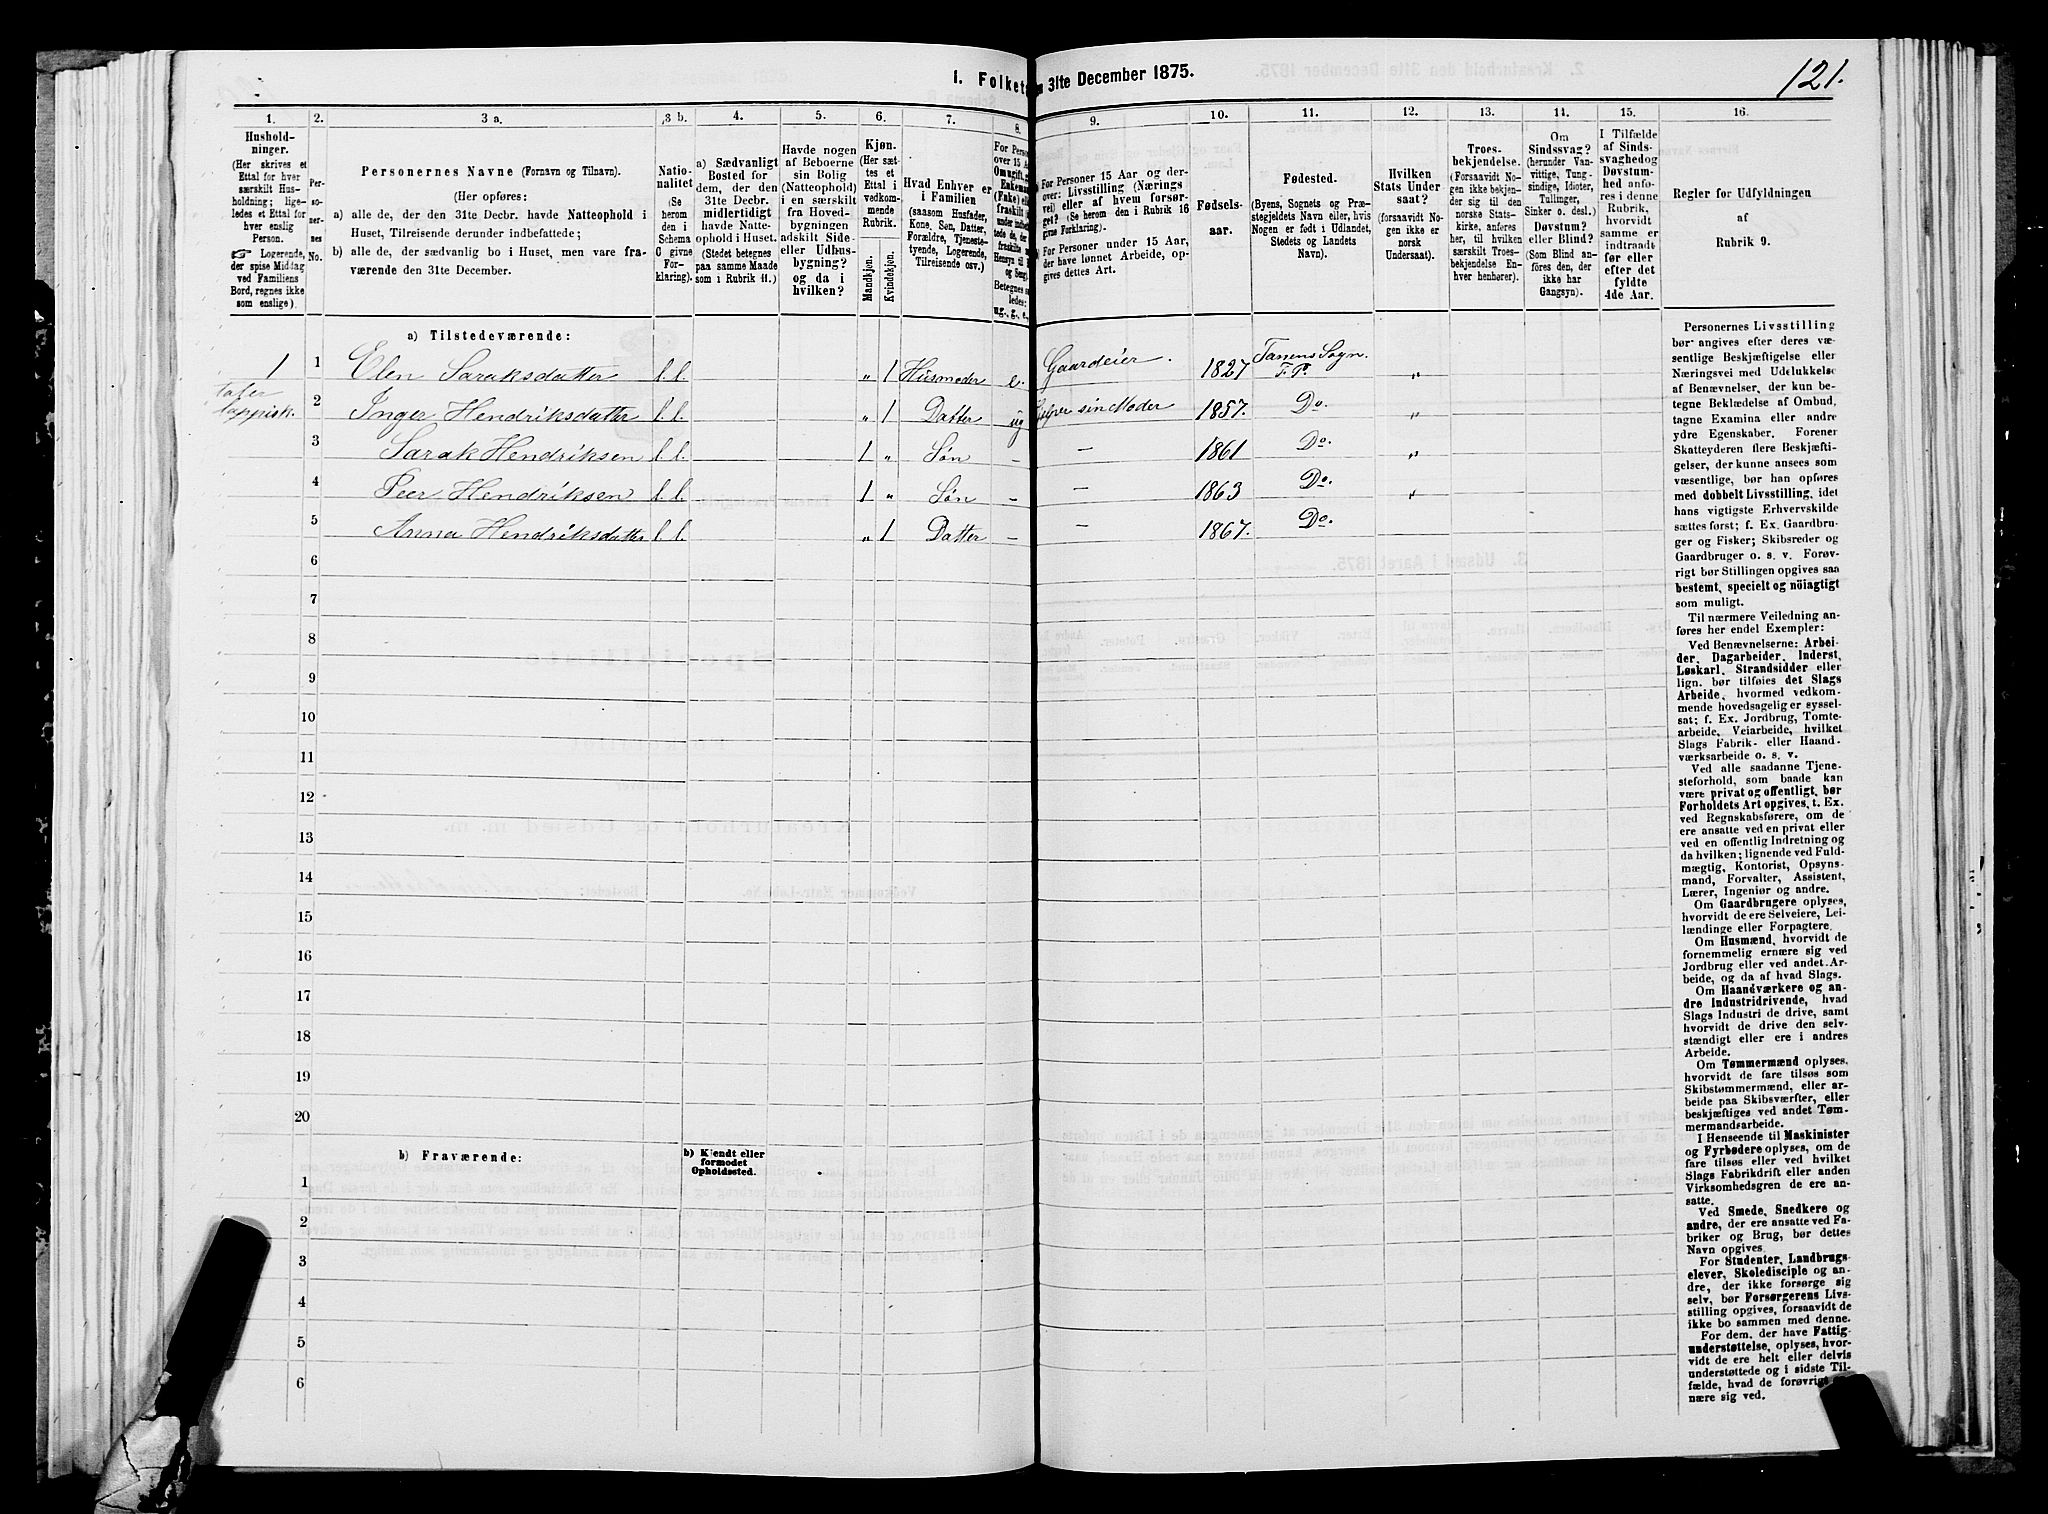 1. Folket n 31te December 1875.
121.
1.
2.
3 a.
3 b.
4.
5.
6.
7.
8.
9.
10.
11.
12.
13.
14.
15.
16.
Hushold-
ninger.
(Her skrives et
Ettal for hver
særskilt Hus-
holdning; lige-
ledes et Ettal for
hver enslig
Person.
☞ Logerende,
der spise Middag
ved Familiens
Bord, regnes ikke
som enslige).
Per-
so-
ner-
nes
No.
Personernes Navne (Fornavn og Tilnavn).
(Her opføres:
a) alle de, der den 31te Decbr. havde Natteophold i
Huset, Tilreisende derunder indbefattede;
b) alle de, der sædvanlig bo i Huset, men vare fra-
værende den 31te December.
Natio-
nalitet
(Se
herom
den i
Schema
C givne
For-
klaring).
a) Sædvanligt
Bosted for
dem, der den
31te Decbr.
midlertidigt
havde Natte-
ophold i Huset.
(Stedet betegnes
paa samme Maade
som i Rubrik 11.)
Havde nogen
af Beboerne
sin Bolig
(Natteophold)
i en særskilt
fra Hoved-
bygningen
adskilt Side-
eller Udhus-
bygning?
og da i
hvilken?
Kjøn.
(Her sæt-
tes et
Ettal i
vedkom-
mende
Rubrik.
Mandkjøn.
Kvindekjøn.
Hvad Enhver er
i Familien
(saasom Husfader,
Kone, Søn, Datter,
Forældre, Tjeneste-
tyende, Logerende,
Tilreisende osv.)
For Perso
over 15 Aa
Om ugift, g
Enkema
(Enke) el
fraskilt
under indbe
tede de, de
fraskilte
Hensyn til
og Seng.
Betegnes sa
ledes:
ug., g., e.,
For Personer 15 Aar og der-
over: Livsstilling (Nærings
vei) eller af hvem forsør-
get? (Se herom i Rubrik 16
givne Forklaring).
For Personer under 15 Aar,
der have lønnet Arbeide, op-
gives dettes Art.
Fødsels-
aar.
Fødested.
(Byens, Sognets og Præ-
stegjeldets Navn eller, hvis
Nogen er født i Udlandet,
Stedets og Landets
Navn).
Hvilken
Stats Under-
saat?
(forsaavidt No-
gen ikke er
norsk
Undersaat).
Troes-
bekjendelse.
(Forsaavidt No-
gen ikke bekjen-
der sig til den
norske Stats-
kirke, anføres
her, til hvilken
særskilt Troes-
bekjendelse En-
hver henhører).
Om
Sindssvag?
(herunder Van-
vittige, Tung-
sindige, Idioter,
Tullinger,
Sinker o. desl.)
Døvstum?
eller Blind?
(Som Blind an-
føres den, der
ikke har
Gangsyn).
I Tilfælde
af Sinds-
svaghed og
Døvstum-
hed anfø-
res i denne
Rubrik,
hvorvidt
samme er
indtraadt
før eller
efter det
fyldte
4de Aar.
Regler for Udfyldningen
af
Rubrik 9.
a) Tilstedeværende:
1 1 Elen Saraksdatter l.l. „ 1 Husmoder e. Gaardeier. 1827 Tanens Sogn. F. P. „
taler lappisk.
2 Inger Hendriksdatter l.l. „ 1 Datter ug Hjelper sin Moder 1857. Do. „
3 Sarak Hendriksen l.l. 1 „ Søn – – 1861 Do. „
4 Peer Hendriksen l.l. 1 „ Søn – – 1863 Do. „
5 Anna Hendriksdatter l.l. „ 1 Datter – – 1867. Do.
6
7
8
9
10
11
12
13
14
15
16
17
18
19
20
b) Fraværende:
b) Kjendt eller
formodet
Opholdssted.
1
2
3
4
5
6
Personernes Livsstilling
bør angives efter deres væ-
sentlige Beskjæftigelse eller
Næringsvei med Udelukkelse
af Benævnelser, der kun be-
tegne Beklædelse af Ombud,
tagne Examina eller andre
ydre Egenskaber. Forener
Skatteyderen flere Beskjæfti-
gelser, der kunne ansees som
væsentlige, bør han opføres
med dobbelt Livsstilling, idet
hans vigtigste Erhvervskilde
sættes først; f. Ex. Gaardbru-
ger og Fisker; Skibsreder og
Gaardbruger o. s. v. Forøv-
rigt bør Stillingen opgives saa
bestemt, specielt og nöiagtigt
som muligt.
Til nærmere Veiledning an-
føres her endel Exempler:
Ved Benævnelserne: Arbei-
der, Dagarbeider, Inderst,
Løskarl, Strandsidder eller
lign. bør tilføies det Slags
Arbeide, hvormed vedkom-
mende hovedsagelig er syssel-
sat; f. Ex. Jordbrug, Tomte-
arbeide, Veiarbeide, hvilket
Slags Fabrik- eller Haand-
værksarbeide o. s. v.
Ved alle saadanne Tjene-
steforhold, som baade kan
være privat og offentligt, bør
Forholdets Art opgives, t. Ex.
ved Regnskabsførere, om de
ere ansatte ved en privat eller
ved en offentlig Indretning og
da hvilken; lignende ved Fuld-
mægtig, Kontorist, Opsyns-
mand, Forvalter, Assistent,
Lærer, Ingeniør og andre.
Om Gaardbrugere oplyses,
hvorvidt de ere Selveiere, Lei-
lændinge eller Forpagtere.
Om Husmænd, hvorvidt de
fornemmelig ernære sig ved
Jordbrug eller ved andet Ar-
beide, og da af hvad Slags.
Om Haandværkere og an-
dre Industridrivende, hvad
Slags Industri de drive, samt
hvorvidt de drive den selv-
stændigt eller ere i andres
Arbeide.
Om Tømmermænd oplyses,
hvorvidt de fare tilsøs som
Skibstømmermænd, eller ar-
beide paa Skibsværfter, eller
beskjæftiges ved andet Tøm-
mermandsarbeide.
I Henseende til Maskinister
og Fyrbødere oplyses, om de
fare tilsøs eller ved hvilket
Slags Fabrikdrift eller anden
Virksomhedsgren de ere an-
satte.
Ved Smede, Snedkere og
andre, der ere ansatte ved Fa-
briker og Brug, bør dettes
Navn opgives.
For Studenter, Landbrugs-
elever, Skoledisciple og an-
dre, der ikke forsørge sig
selv, bør Forsørgerens Livs-
stilling opgives, forsaavidt de
ikke bo sammen med denne.
For dem, der have Fattig-
understøttelse, oplyses, hvor-
vidt de ere helt eller delvis
understøttede og i sidste Til-
fælde, hvad de forøvrigt er-
nære sig ved.